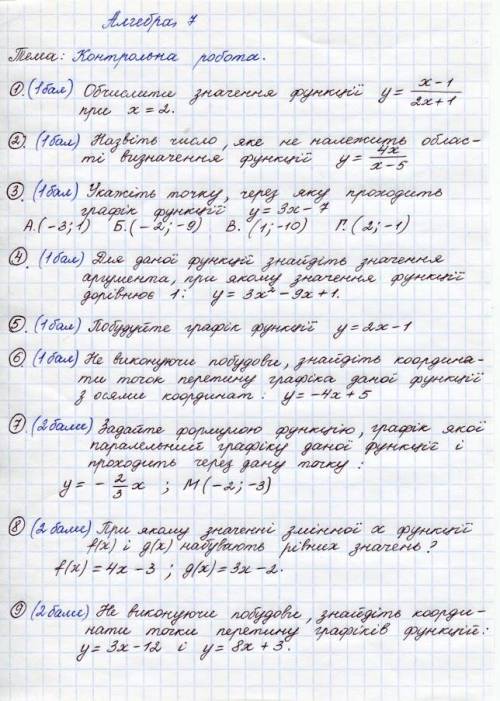 Алгебра, 7
Тема: Контрольна робота.
①. (1 бал) Обчислити значення функції y = (x-1)/(2x+1)
при x = 2.
②. (1 бал) Назвіть число, яке не належить облас-
ті визначення функції y = 4x/(x-5)
③. (1 бал) Укажіть точку, через яку проходить
графік функції y = 3x - 7
А. (-3; 1) Б. (-2; -9) В. (1; -10) Г. (2; -1)
④. (1 бал) Для даної функції знайдіть значення
аргумента, при якому значення функції
дорівнює 1: y = 3x² - 9x + 1.
⑤. (1 бал) Побудуйте графік функції y = 2x - 1
⑥. (1 бал) Не виконуючи побудови, знайдіть координа-
ти точок перетину графіка даної функції
з осями координат: y = -4x + 5
⑦. (2 бали) Задайте формулою функцію, графік якої
паралельний графіку даної функції і
проходить через дану точку:
y = - 2/3 x ; М (-2; -3)
⑧ (2 бали) При якому значенні змінної x функції
f(x) і g(x) набувають рівних значень?
f(x) = 4x - 3 ; g(x) = 3x - 2.
⑨ (2 бали) Не виконуючи побудови, знайдіть коорди-
нати точки перетину графіків функцій:
y = 3x - 12 і y = 8x + 3.